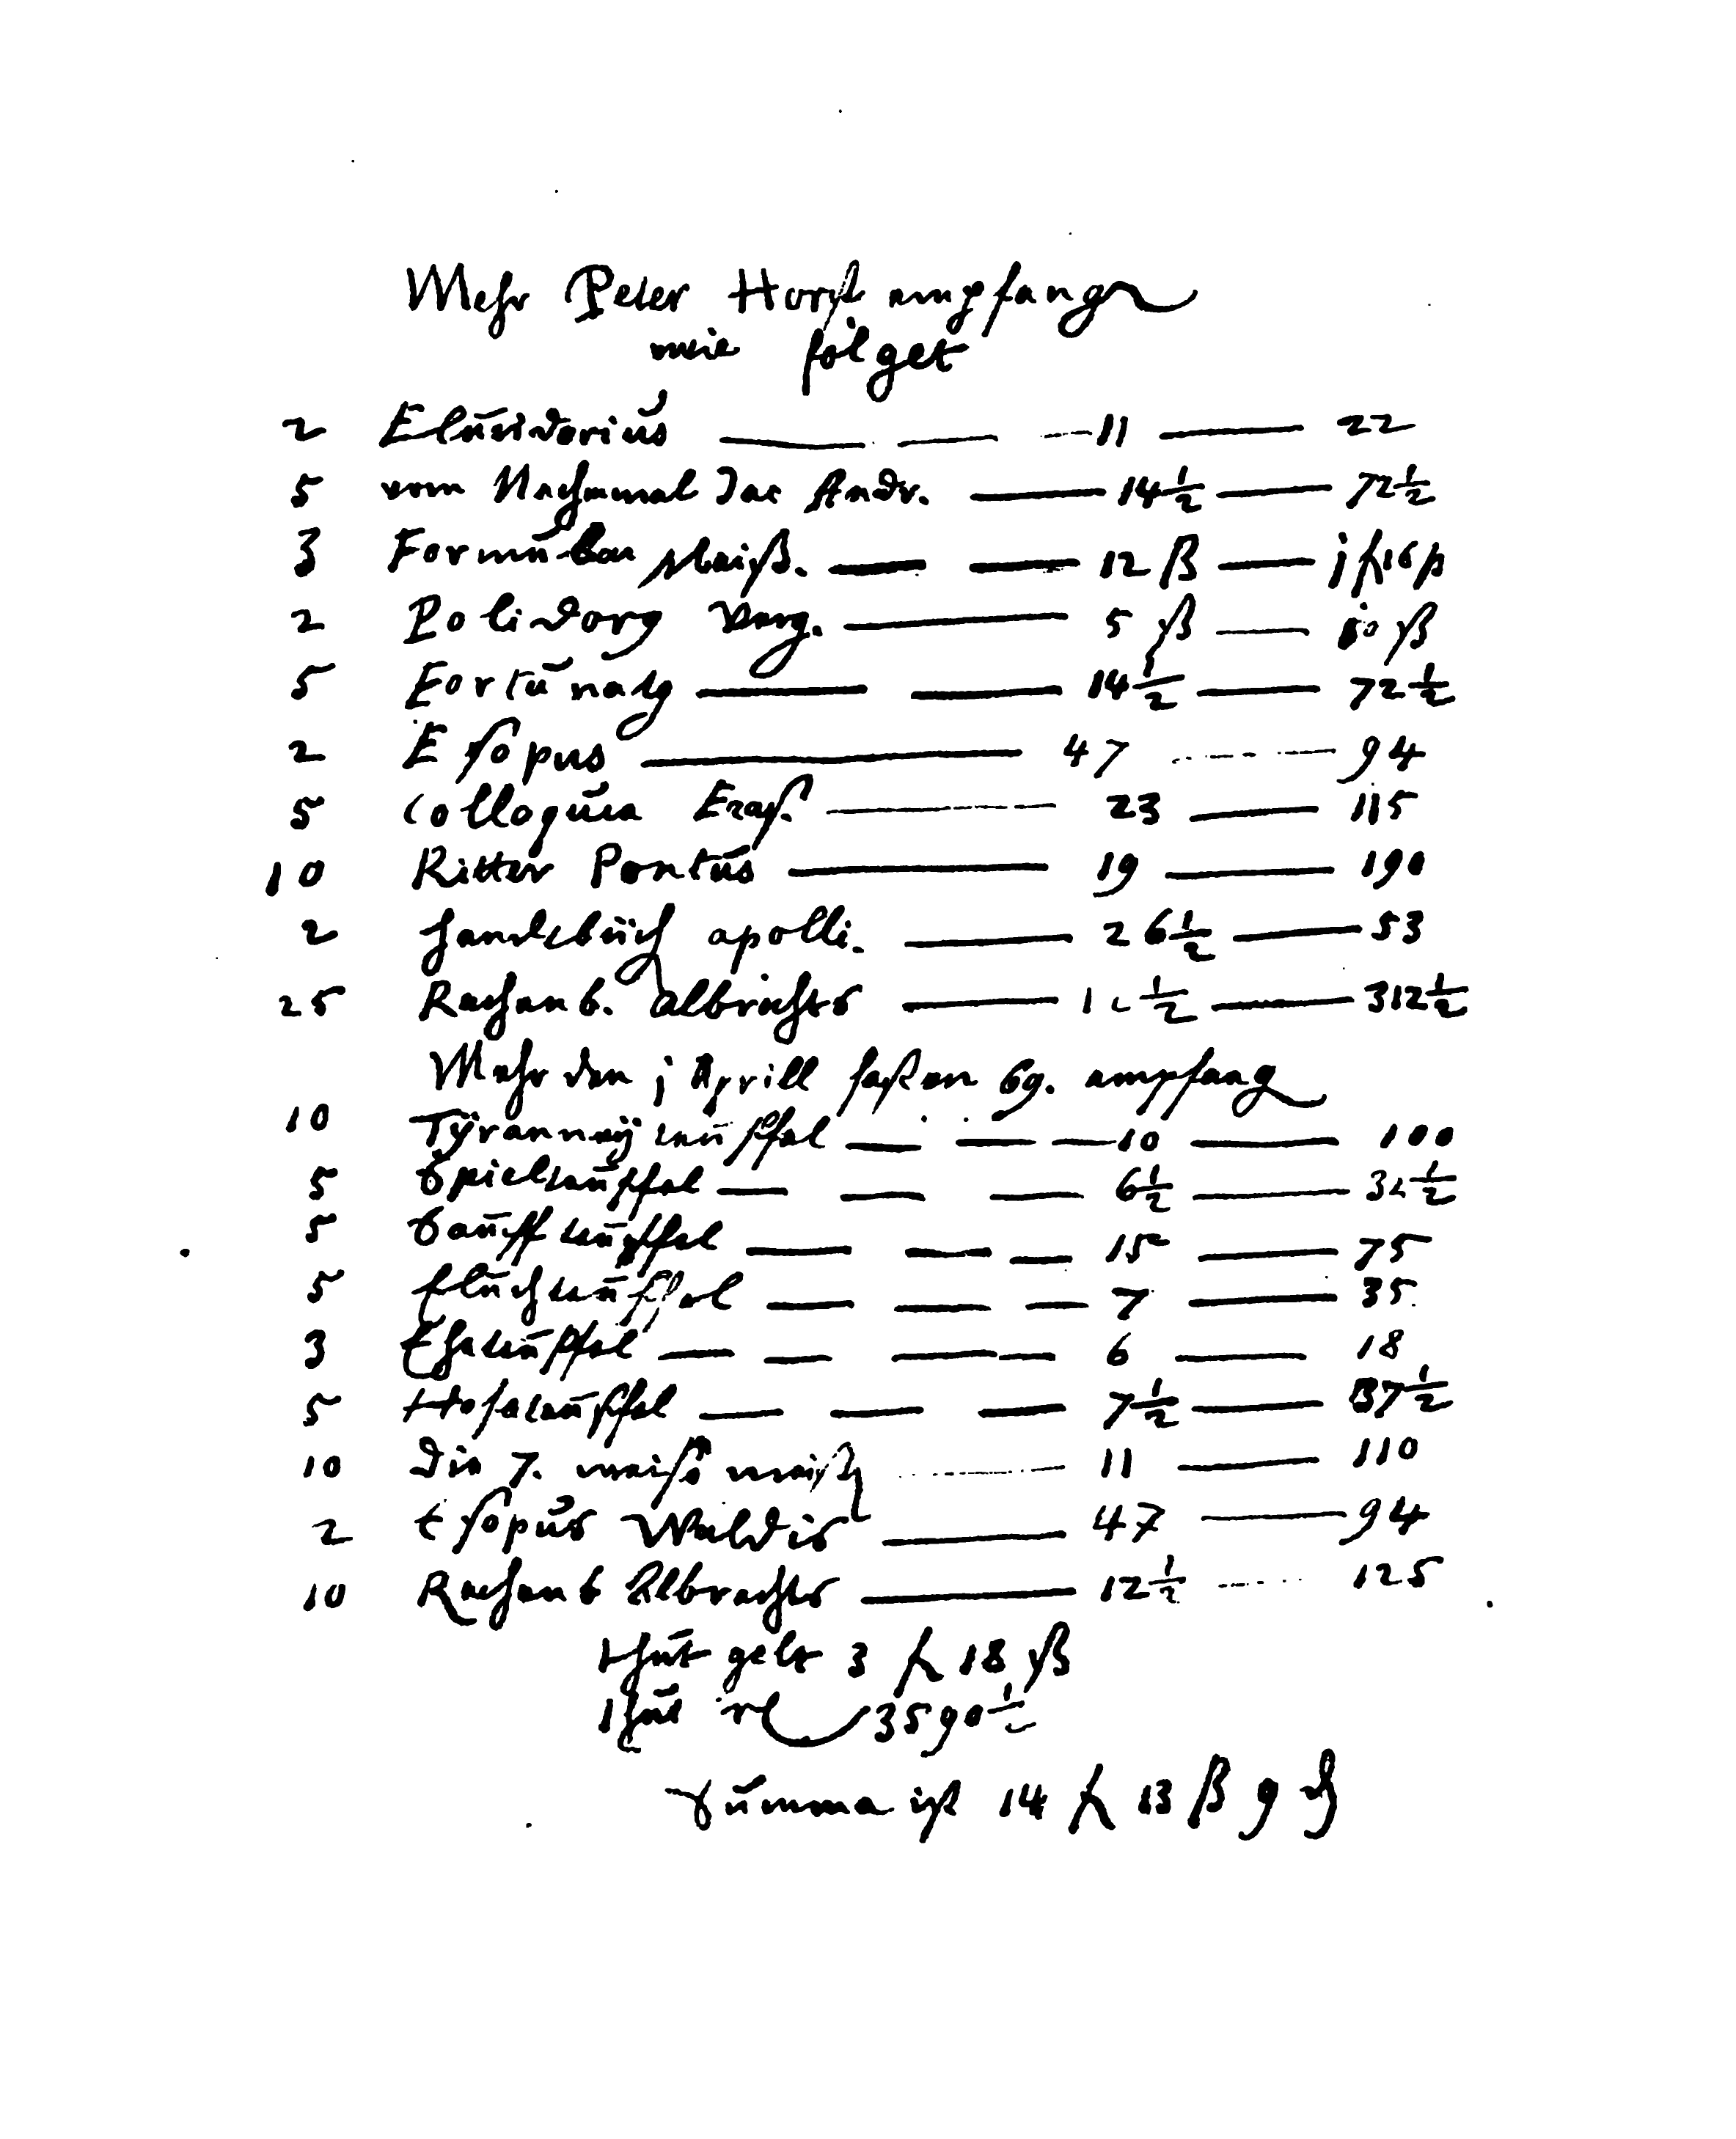 Mehr Peter Horst empfang
wie folget
2 Elucidarius 11 22
5 vom Nachtmal Jac Andr. 14½ 72½
3 Formular Meiß. 12 ß j fl 16 ß
2 Polidorg Verg. 5 ß 10 ß
5 Fortunatg 14½ 72½
2 Esopus 47 94
5 Colloquia Eraß. 23 115
10 Ritter Pontus 19 190
2 handtbuch apolli. 26½ 53
25 Rechenb. Albrichts 12½ 312½
Mehr den j Aprill fasten 69. empfang
10 Tÿranneÿ teuffel 10 100
5 Spielteuffel 6½ 32½
5 Sauffteuffel 15 75
5 fluchteuffel 7 35
3 Eheteuffel 6 18
5 Hofeteuffel 7½ 37½
10 die 7. weise meist 11 110
2 Esopus Waldis 47 94
10 Rechenb Albrechts 12½ 125
thut gelt 3 fl 18 ß
thut 3590½
Summa ist 14 fl 13 ß 9 ₰